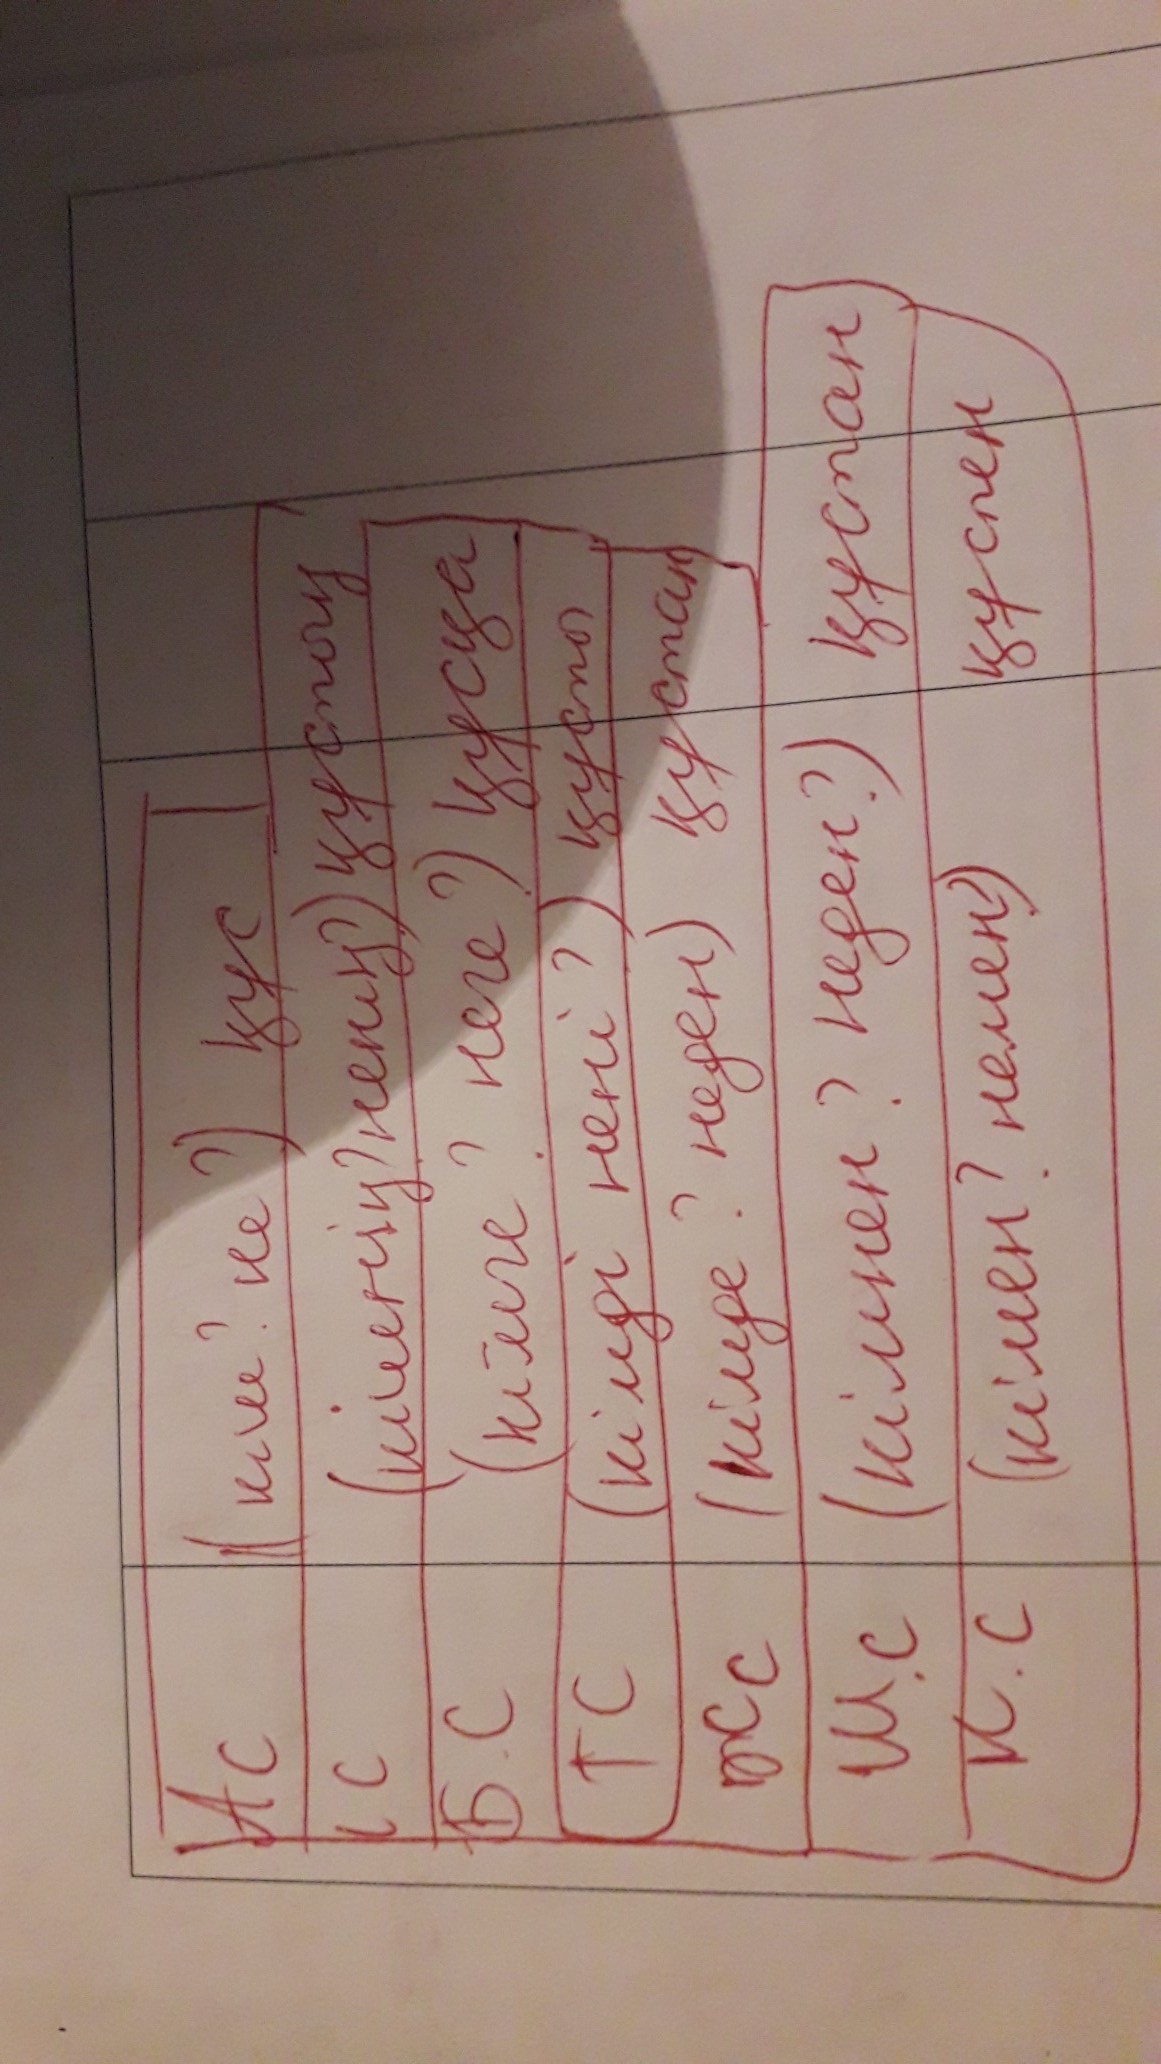 АС (кім? не?) құс
ІС (кімнің? ненің?) құстың
Б.С (кімге? неге?) құсқа
ТС (кімді нені?) құсты
ЖС (кімде? неден) құстан
Ш.С (кімнен? неден?) құстан
К.С (кімен? немен) құспен